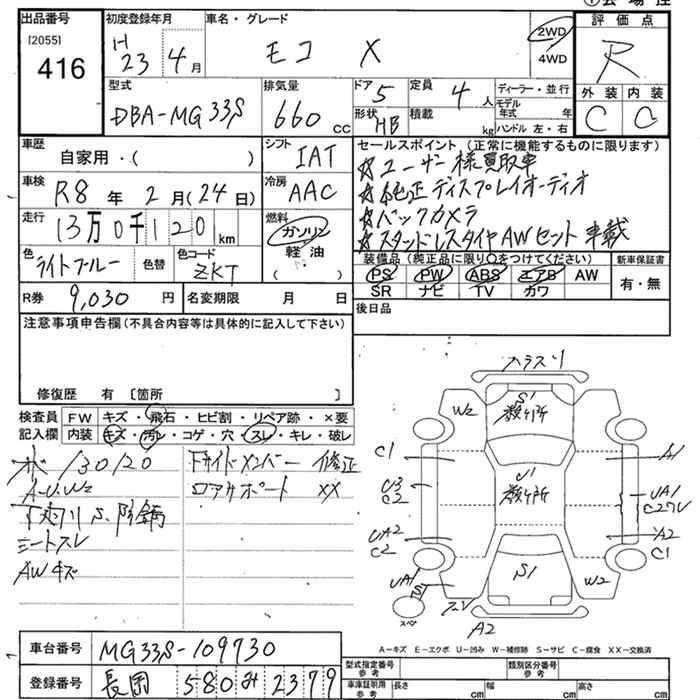 出品番号
[2055]
416
初度登録年月
H
23年 4月
車名・グレード
モコ X
2WD
4WD
評価点
R
外装 内装
C C
型式
DBA-MG33S
排気量
660 cc
ドア 5
形状 HB
定員 4 人
積載 kg
ディーラー・並行
モデル年式 年
ハンドル 左・右
車歴
自家用・( )
シフト
IAT
車検
R8 年 2月(24日)
冷房
AAC
走行
13万0千120 km
燃料
ガソリン
軽油
( ・ )
色
ライトブルー
色替
色コード
ZKT
R券 9,030 円
名変期限 月 日
セールスポイント (正常に機能するものに限ります)
☆ユーザー様買取車
☆純正ディスプレイオーディオ
☆バックカメラ
☆スタッドレスタイヤAWセット車載
装備品 (純正品に限り○をつけてください)
新車保証書
PS PW ABS エアB AW
SR ナビ TV カワ
有・無
後日品
注意事項申告欄(不具合内容等は具体的に記入して下さい)
修復歴 有 [箇所 ]
検査員
記入欄
FW キズ・飛石・ヒビ割・リペア跡・×要
内装 キズ・汚レ・コゲ・穴・スレ・キレ・破レ
/30/20
A-U.W2
下廻り S.防錆
シートスレ
AWキズ
Fサイドメンバー 修正
ロアサポート XX
S1
W2
C1
U1
A1
UA1
C2
UA2
C2
A2
C1
UA1
S1
W2
スペア
A2
A-キズ E-エクボ U-凹み W-補修跡 S-サビ C-腐食 XX-交換済
車台番号 MG33S-109730
登録番号 長岡 580 み 2379
型式指定番号
類別区分番号
車庫証明用
(参考)
長さ cm
幅 cm
高さ cm